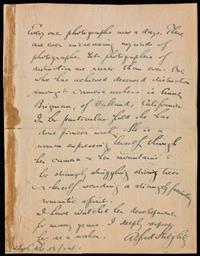 Every one photographs now a days. There
are ever increasing myriads of
photographs. Yet photographers of
distinction are rarer than ever. One
who has achieved deserved distinction
amongst camera workers is Annie
Brigman, of Oakland, California.
In her particular field she has
done pioneer work. She is a
woman expressing herself through
her camera & her mountains &
her strangely struggling shrubby trees
& herself rendering a strangely
romantic spirit.
I have watched her development
for many years. I deeply respect
her as a worker.
Alfred Stieglitz